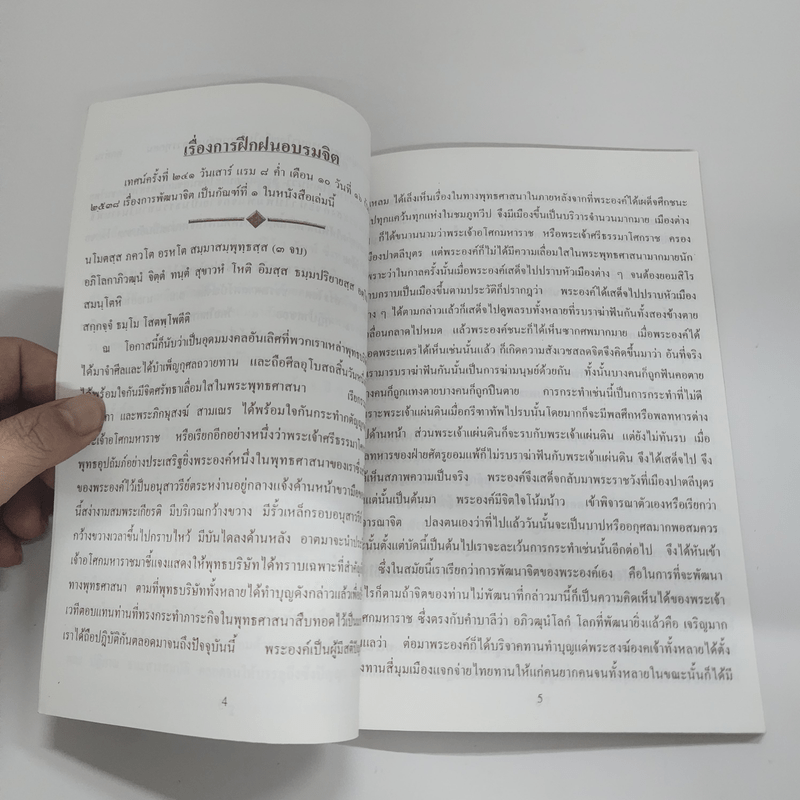 เรื่องการฝึกฝนอบรมจิต
เทศน์ครั้งที่ ๒๔๑ วันเสาร์ แรม ๘ ค่ำ เดือน ๑๐ วันที่
๒๕๓๘ เรื่องการพัฒนาจิต เป็นกัณฑ์ที่ ๑ ในหนังสือเล่มนี้
นโมตสฺส ภควโต อรหโต สมฺมาสมฺพุทฺธสฺส (๓ จบ)
อภิโลกาภิวฒฺนํ จิตฺตํ ทนฺตํ สุขาวหํ โหติ อิมสฺส ธมฺมปริยายสฺส
สมนฺโตหิ
สกฺกจฺจํ ธมฺโม โสตพฺโพติติ
ณ โอกาสนี้ก็นับว่าเป็นอุดมมงคลอันเลิศที่พวกเราเหล่าพุทธ
ได้มาจำศีลและได้บำเพ็ญกุศลถวายทาน และถือศีลอุโบสถสิ้นวัน
ได้พร้อมใจกันมีจิตศรัทธาเลื่อมใสในพระพุทธศาสนา
และพระภิกษุสงฆ์ สามเณร ได้พร้อมใจกันกระทำกตัญญู
พระเจ้าอโศกมหาราช หรือเรียกอีกอย่างหนึ่งว่าพระเจ้าศรีธรรมาโศก
พุทธอุปถัมภ์อย่างประเสริฐยิ่งพระองค์หนึ่งในพุทธศาสนาของเรา
ของพระองค์ไว้เป็นอนุสาวรีย์ตระหง่านอยู่กลางแจ้งด้านหน้าขวามือ
นี้สง่างามสมพระเกียรติ มีบริเวณกว้างขวาง มีรั้วเหล็กรอบอนุสาวรีย์
กว้างขวางเวลาขึ้นไปกราบไหว้ มีบันไดลงด้านหลัง อาตมาจะนำ
เจ้าอโศกมหาราชมาชี้แจงแสดงให้พุทธบริษัทได้ทราบเฉพาะที่สำคัญ
ทางพุทธศาสนา ตามที่พุทธบริษัททั้งหลายได้ทำบุญดังกล่าวแล้ว
เวทีตอบแทนท่านที่ทรงกระทำภาระกิจในพุทธศาสนาสืบทอดไว้
เราได้ถือปฏิบัติกันตลอดมาจนถึงปัจจุบันนี้ พระองค์เป็นผู้มีสติ
4
ได้เล็งเห็นเรื่องในทางพุทธศาสนาในภายหลังจากที่พระองค์ได้เผด็จศึกชนะ
ไปทุกแคว้นทุกแห่งในชมภูทวีป จึงมีเมืองขึ้นเป็นบริวารจำนวนมากมาย เมืองต่าง
ก็ได้ขนานนามว่าพระเจ้าอโศกมหาราช หรือพระเจ้าศรีธรรมาโศกราช ครอง
เมืองปาตลีบุตร แต่พระองค์ก็ไม่ได้มีความเลื่อมใสในพระพุทธศาสนามากมายนัก
เพราะว่าในกาลครั้งนั้นเมื่อพระองค์เสด็จไปปราบหัวเมืองต่าง ๆ จนต้องยอมสิโร
กราบเป็นเมืองขึ้นตามประวัติก็ปรากฎว่า พระองค์ได้เสด็จไปปราบหัวเมือง
ต่าง ๆ ได้ตามกล่าวแล้วก็เสด็จไปดูพลรบทั้งหลายที่รบราฆ่าฟันกันทั้งสองข้างตาย
เกลื่อนกลาดไปหมด แล้วพระองค์ชนะก็ได้เห็นซากศพมากมาย เมื่อพระองค์ได้
พระเนตรได้เห็นเช่นนั้นแล้ว ก็เกิดความสังเวชสลดจิตจึงคิดขึ้นมาว่า อันที่จริง
เรามารบราฆ่าฟันกันนั้นเป็นการฆ่ามนุษย์ด้วยกัน ทั้งนั้นบางคนก็ถูกฟันคอตาย
บางคนก็ถูกแทงตายบางคนก็ถูกปืนตาย การกระทำเช่นนี้เป็นการกระทำที่ไม่ดี
เพราะพระเจ้าแผ่นดินเมื่อกรีฑาทัพไปรบนั้นโดยมากก็จะมีพลศึกหรือพลทหารต่าง
ด้านหน้า ส่วนพระเจ้าแผ่นดินก็จะรบกับพระเจ้าแผ่นดิน แต่ยังไม่ทันรบ เมื่อ
ทหารของฝ่ายศัตรูยอมแพ้ก็ไม่ได้รบราฆ่าฟันกับพระเจ้าแผ่นดิน จึงได้เสด็จไป
เห็นสภาพความเป็นจริง พระองค์จึงเสด็จกลับมาพระราชวังที่เมืองปาตลีบุตร
แต่นั้นเป็นต้นมา พระองค์มีจิตใจโน้มน้าว เข้าพิจารณาตัวเองหรือเรียกว่า
พิจารณาจิต ปลงตนเองว่าที่ไปแล้ววันนั้นจะเป็นบาปหรืออกุศลมากพอสมควร
นั้นตั้งแต่บัดนี้เป็นต้นไปเราจะละเว้นการกระทำเช่นนั้นอีกต่อไป จึงได้หันเข้า
ซึ่งในสมัยนี้เราเรียกว่าการพัฒนาจิตของพระองค์เอง คือในการที่จะพัฒนา
ไรก็ตามถ้าจิตของท่านไม่พัฒนาที่กล่าวมานี้ก็เป็นความคิดเห็นได้ของพระเจ้า
อโศกมหาราช ซึ่งตรงกับคำบาลีว่า อภิวฒฺนํโลกํ โลกที่พัฒนายิ่งแล้วคือ เจริญมาก
แลว่า ต่อมาพระองค์ก็ได้บริจาคทานทำบุญแด่พระสงฆ์องคเจ้าทั้งหลายได้ตั้ง
ทานสี่มุมเมืองแจกจ่ายไทยทานให้แก่คนยากคนจนทั้งหลายในขณะนั้นก็ได้มี
5